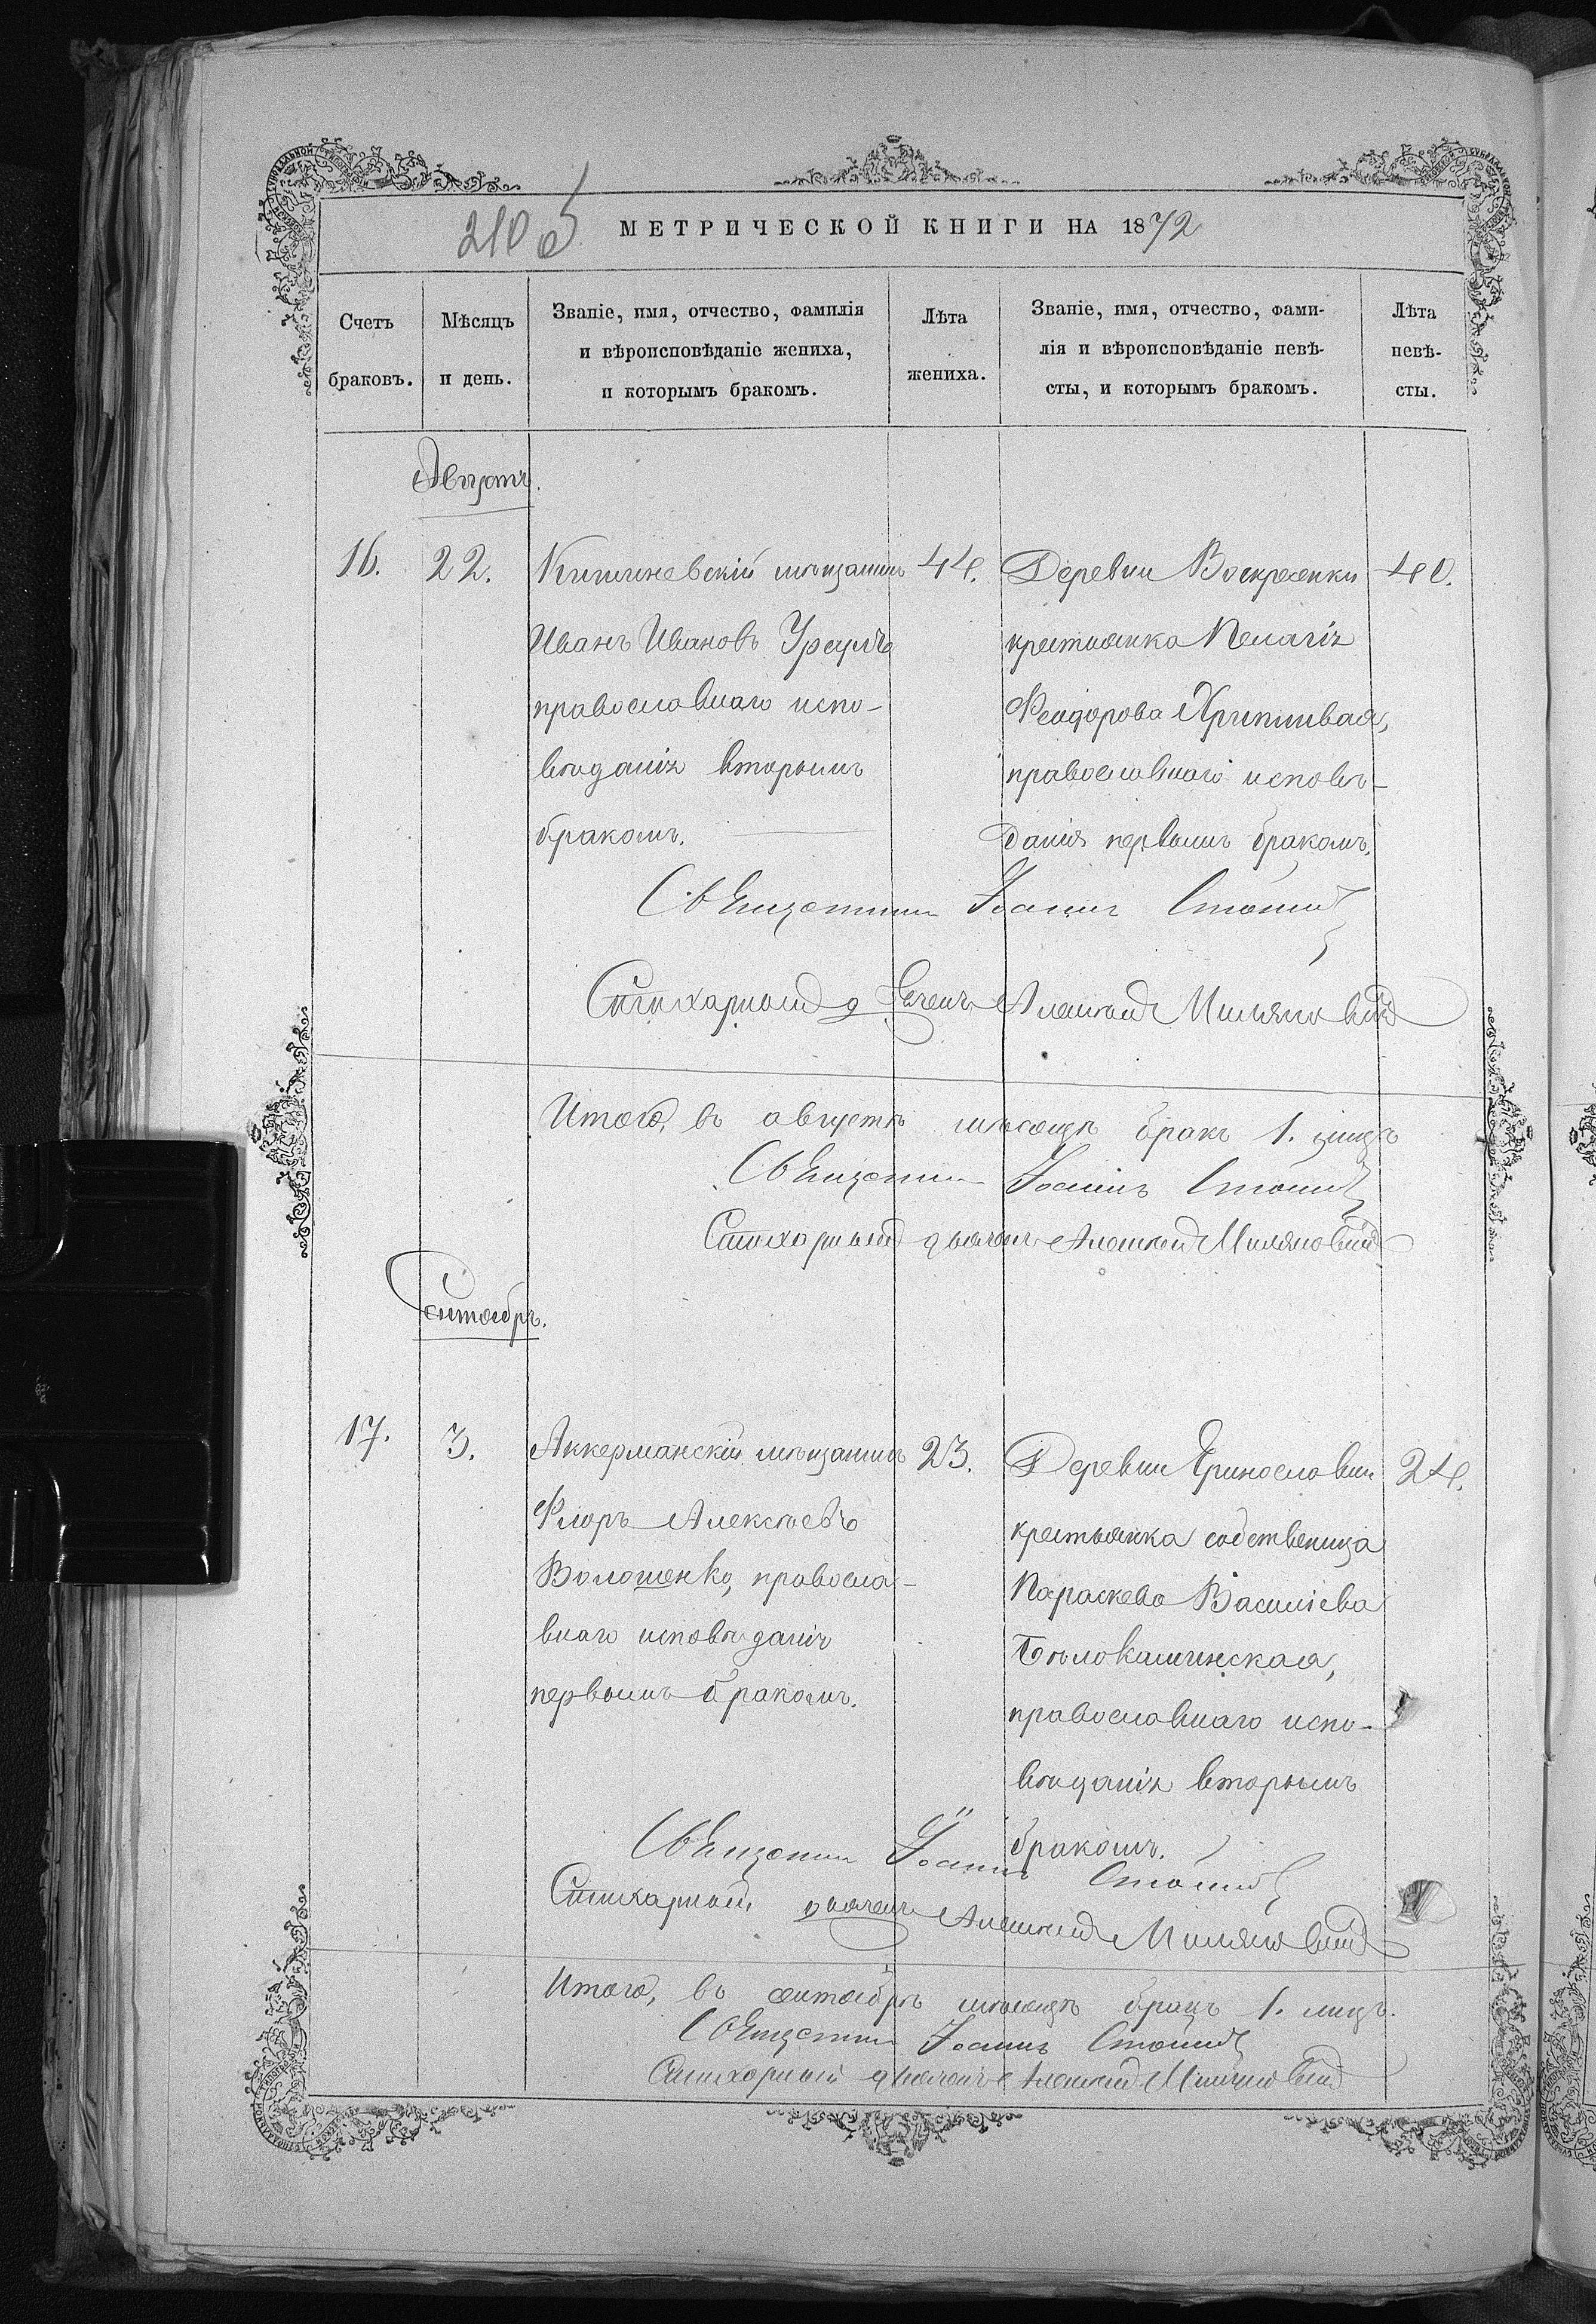 210 об
МЕТРИЧЕСКОЙ КНИГИ НА 1872
Счетъ браковъ.
Мѣсяцъ и день.
Званіе, имя, отчество, фамилія
и вѣроисповѣданіе жениха,
и которымъ бракомъ.
Лѣта
жениха.
Званіе, имя, отчество, фами-
лія и вѣроисповѣданіе невѣ-
сты, и которымъ бракомъ.
Лѣта
невѣ-
сты.
Августъ.
16.
22.
Кишиневскій мѣщанинъ
Иванъ Ивановъ
православнаго испо-
вѣданія вторымъ
бракомъ.
44.
Деревни Воскресенки
крестьянка Пелагія
Феодорова
православнаго исповѣ-
данія первымъ бракомъ.
40.
Священникъ Іоаннъ
Стихарный дьячекъ Алексій
Итого, въ августѣ мѣсяцѣ бракъ 1.
Священникъ Іоаннъ
Стихарный дьячекъ Алексій
Сентябрь.
17.
3.
Аккерманскій мѣщанинъ
Флоръ Алексѣевъ
Волошенко, правосла-
внаго исповѣданія
первымъ бракомъ.
23.
Деревни
крестьянка собственица
Параскева Василіева
православнаго испо-
вѣданія вторымъ
бракомъ.
24.
Священникъ Іоаннъ
Стихарный дьячекъ Алексій
Итого, въ сентябрѣ мѣсяцѣ 1.
Священникъ Іоаннъ
Стихарный дьячекъ Алексій